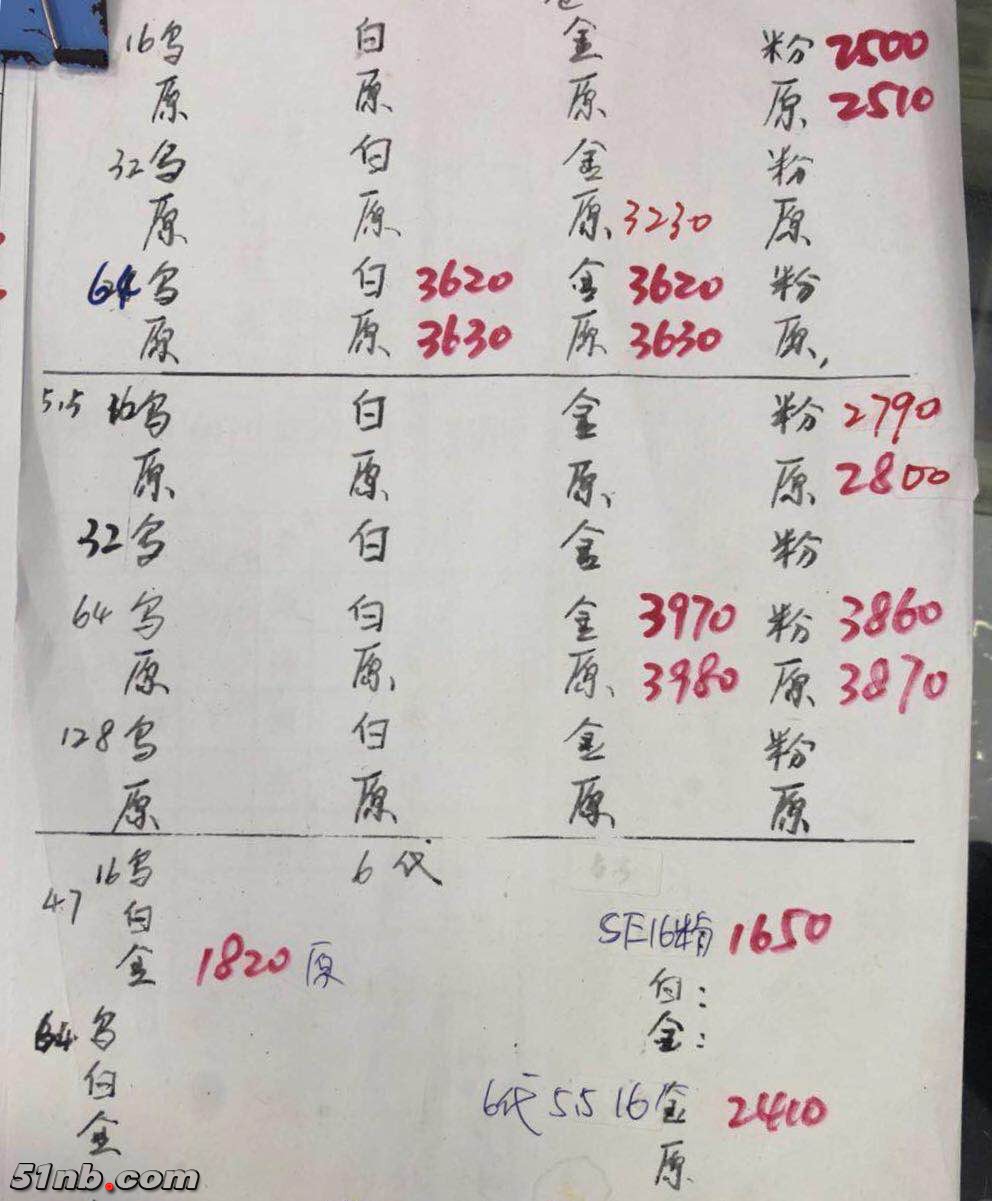 16乌 白 金 粉 2500
原 原 原 原 2510
32乌 白 金 粉
原 原 原 3230 原
64乌 白 3620 金 3620 粉
原 原 3630 原 3630 原
5.5 16乌 白 金 粉 2790
原 原 原 原 2800
32乌 白 金 粉
64乌 白 金 3970 粉 3860
原 原 原 3980 原 3870
128乌 白 金 粉
原 原 原 原
16乌 6代
4.7 白 SE16粉 1650
金 1820 原
白:
64乌 金:
白
6代 5.5 16金 2410
金
原
51nb.com